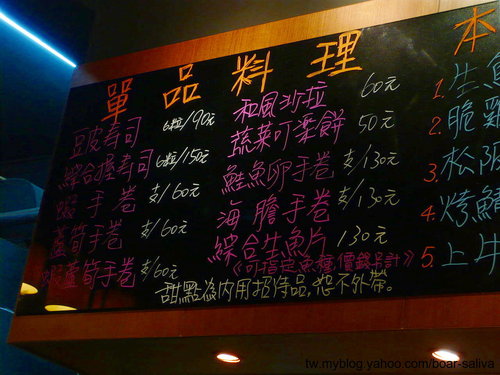 單品料理
豆皮壽司 6粒/90元
綜合握壽司 6粒/150元
蝦手卷 支/60元
蘆筍手卷 支/60元
蝦蘆筍手卷 支/60元
和風沙拉 60元
蔬菜可樂餅 50元
鮭魚卵手卷 支/130元
海膽手卷 支/130元
綜合生魚片 130元
《可指定魚種價錢另計》
甜點為內用招待品,恕不外帶。
本
1. 生魚
2. 脆雞
3. 松阪
4. 烤鯖
5. 上牛
tw.myblog.yahoo.com/boar-saliva